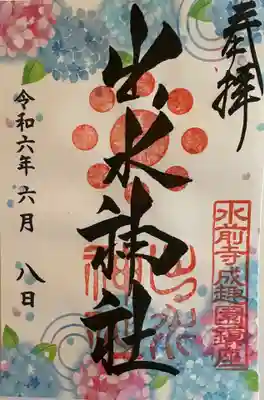 奉拝
出水神社
出水神社
水前寺成趣園鎮座
令和六年 六月 八日